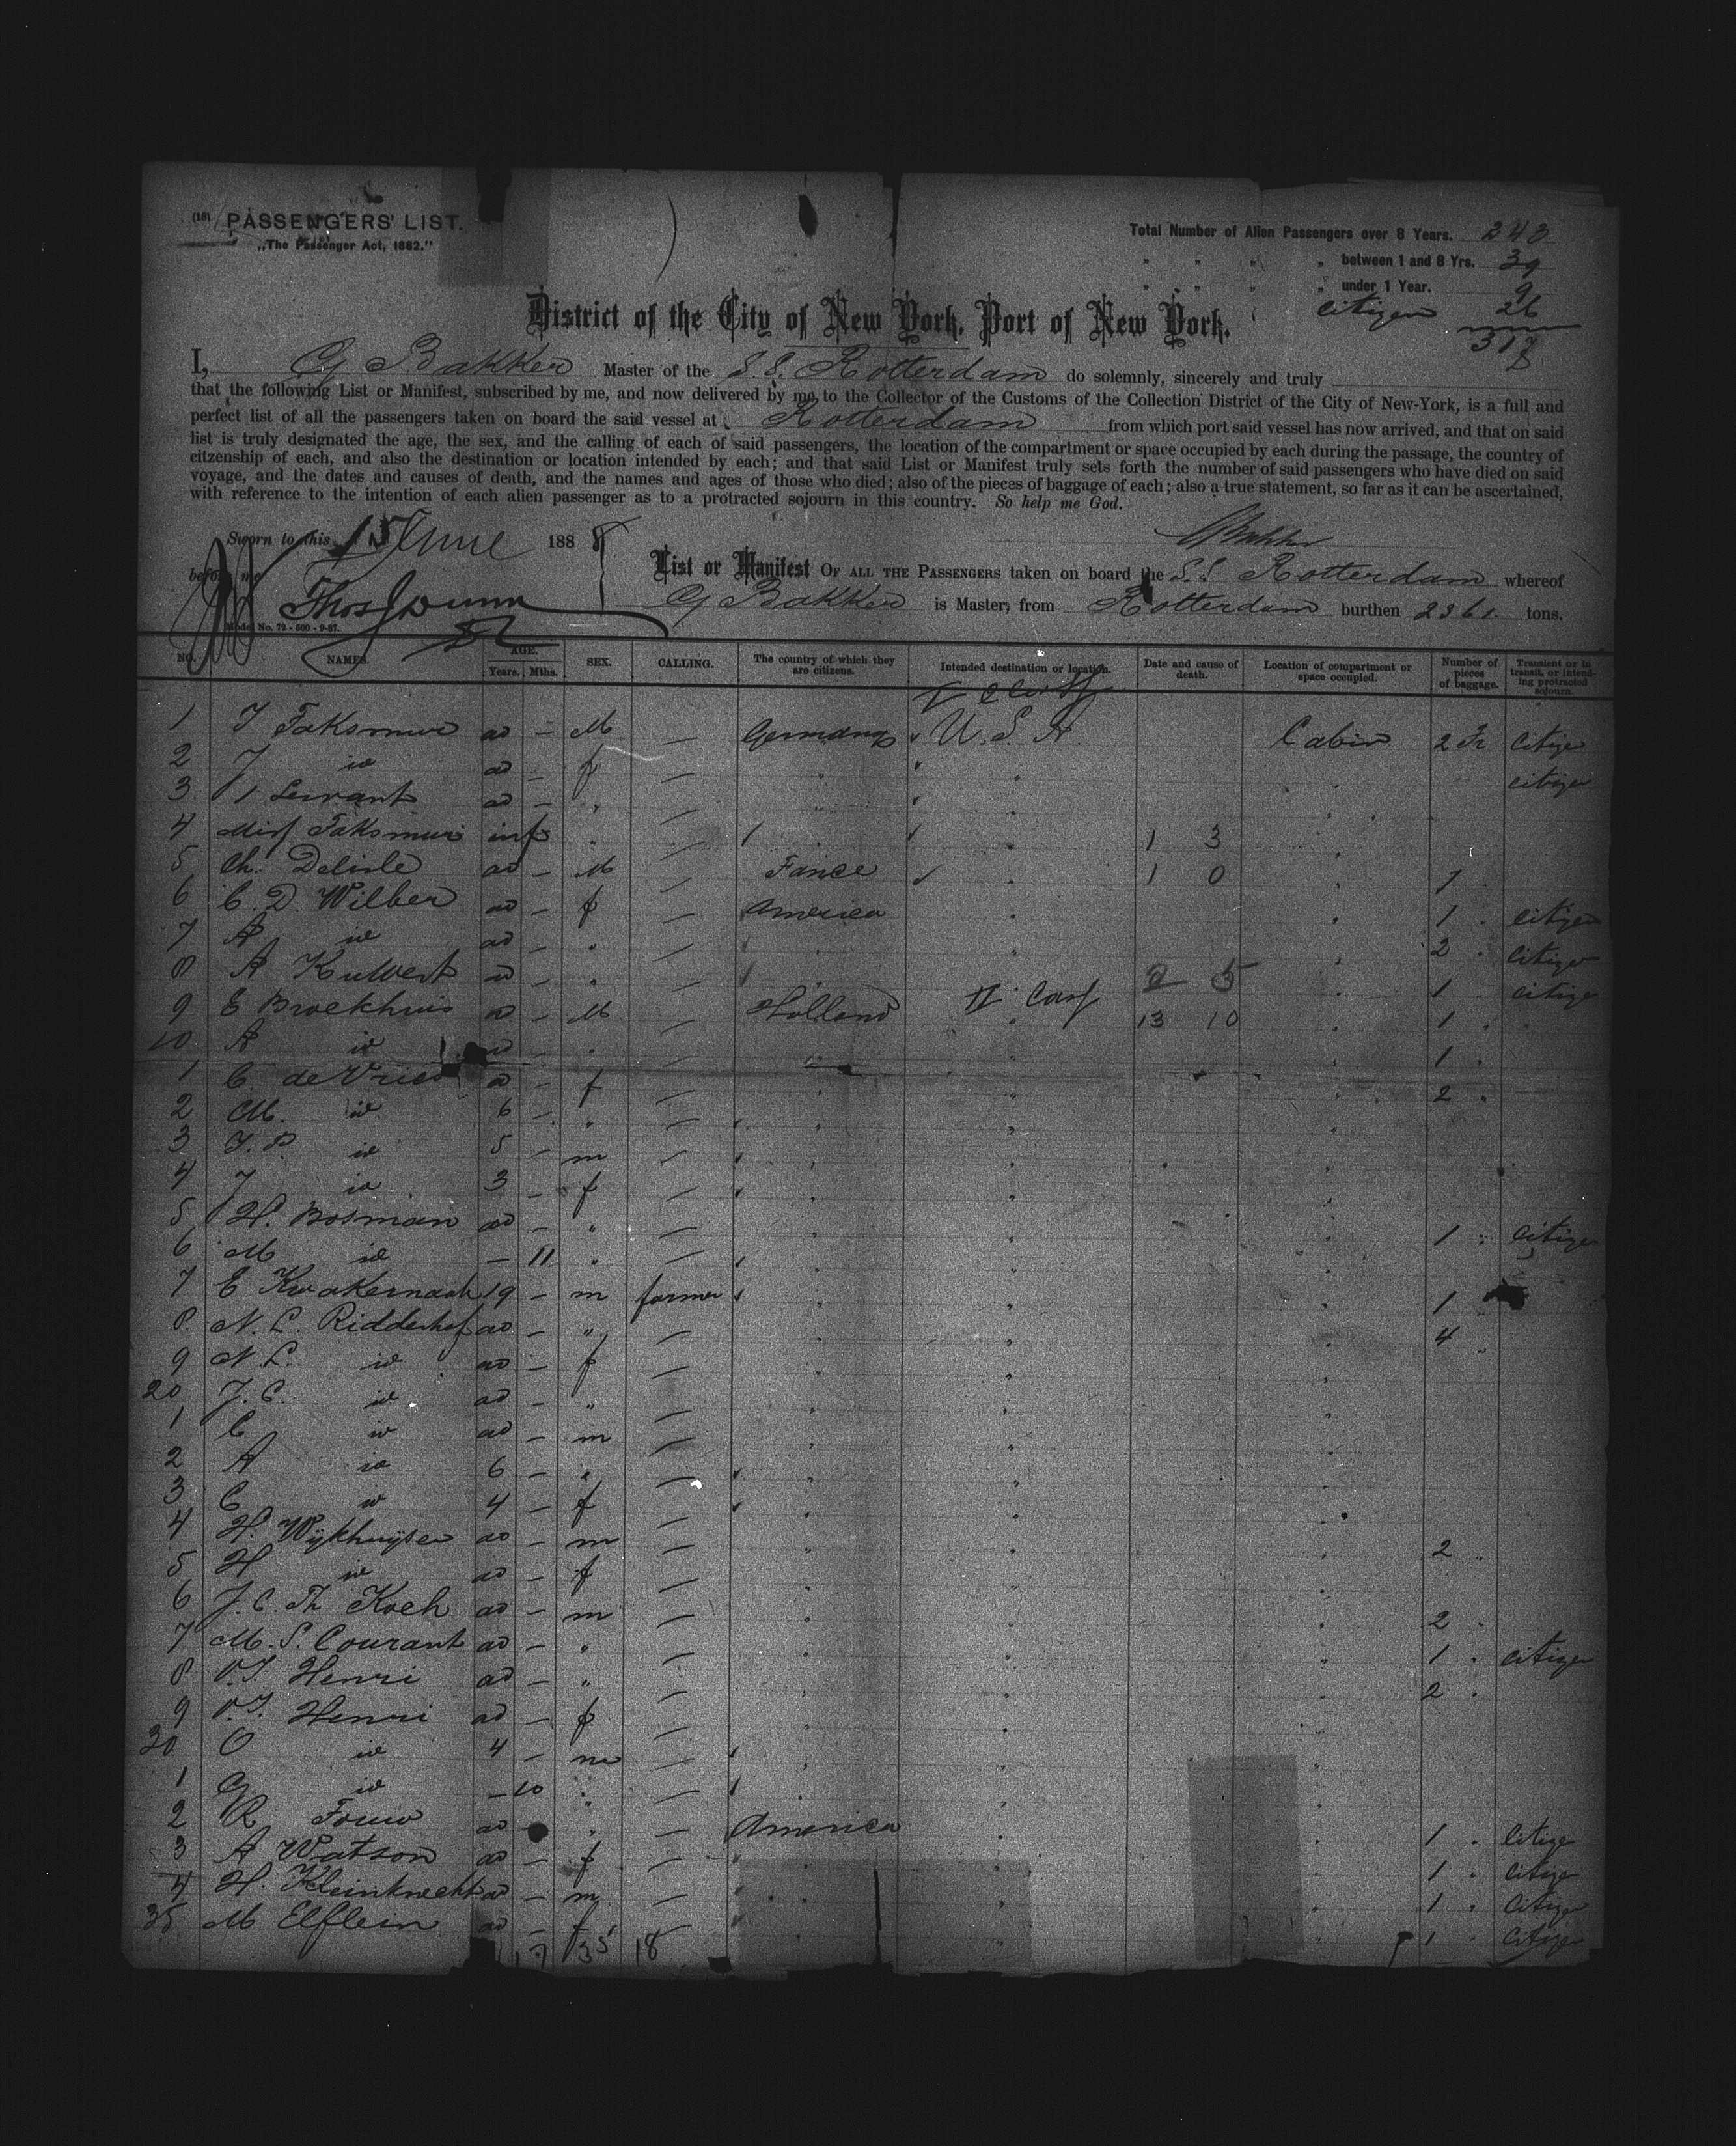 (18) PASSENGERS' LIST.
„The Passenger Act, 1882."
Total Number of Alien Passengers over 8 Years. 243
" " " „ between 1 and 8 Yrs. 39
" " " „ under 1 Year. 9
citizen 26
317
District of the City of New York, Port of New York.
I, G Bakker Master of the S.S. Rotterdam do solemnly, sincerely and truly
that the following List or Manifest, subscribed by me, and now delivered by me to the Collector of the Customs of the Collection District of the City of New-York, is a full and
perfect list of all the passengers taken on board the said vessel at Rotterdam from which port said vessel has now arrived, and that on said
list is truly designated the age, the sex, and the calling of each of said passengers, the location of the compartment or space occupied by each during the passage, the country of
citzenship of each, and also the destination or location intended by each; and that said List or Manifest truly sets forth the number of said passengers who have died on said
voyage, and the dates and causes of death, and the names and ages of those who died; also of the pieces of baggage of each; also a true statement, so far as it can be ascertained,
with reference to the intention of each alien passenger as to a protracted sojourn in this country. So help me God.
Sworn to this 15 June 1888
G Bakker
before me Thos J Dunn
List or Manifest OF ALL THE PASSENGERS taken on board the S.S. Rotterdam whereof
G Bakker is Master, from Rotterdam burthen 2361. tons.
Model No. 72 - 500 - 9-87.
NO. NAMES. AGE. Years. Mths. SEX. CALLING. The country of which they are citizens. Intended destination or location. Date and cause of death. Location of compartment or space occupied. Number of pieces of baggage. Transient or in transit, or intending protracted sojourn.
1 ad — M — Germany U.S.A. Cabin 2 citize
2 J id ad — f — " " citize
3 1 Servant ad — " — " "
4 inf " — " 1 3
5 Ch. Delisle ad — M — Fance " 1 0 1
6 C. D. Wilber ad — f — America " 1 " citizen
7 A id ad — " — " 2 " citize
8 A ad — " — 2 5 1 " citize
9 E Broekhuis ad — M — Holland 13 10 1 "
10 A id ad — " — " 1
1 C. de Vries ad — f — " 2 "
2 M. id 6 — " — " "
3 J. P. id 5 — m — " "
4 J id 3 — f — " "
5 H. Bosman ad — " — " 1 " citize
6 M id — 11 " — " "
7 E Kwakernaak 19 — m farmer " 1
8 N. L. Ridderhof ad — " — " 4 "
9 N. L. id ad — f — " "
20 J. C. id ad — " — " "
1 C id ad — m — " "
2 A id 6 — " — " "
3 C id 4 — f — " "
4 H. Wijkhuijsen ad — m — " 2 "
5 H id ad — f — " "
6 J. C. Th Koch ad — m — " 2 "
7 M. S. Courant ad — " — " 1 " citize
8 Henri ad — " — " 2 "
9 Henri ad — f — " "
30 O id 4 — m — " "
1 G id — 10 " — " "
2 R ad " — America " 1 " citize
3 A Watson ad — f — " 1 " citize
4 H. Kleinknecht ad — m — " 1 " citize
35 M Elflein ad — f — " 1 " citizen
17 35 18